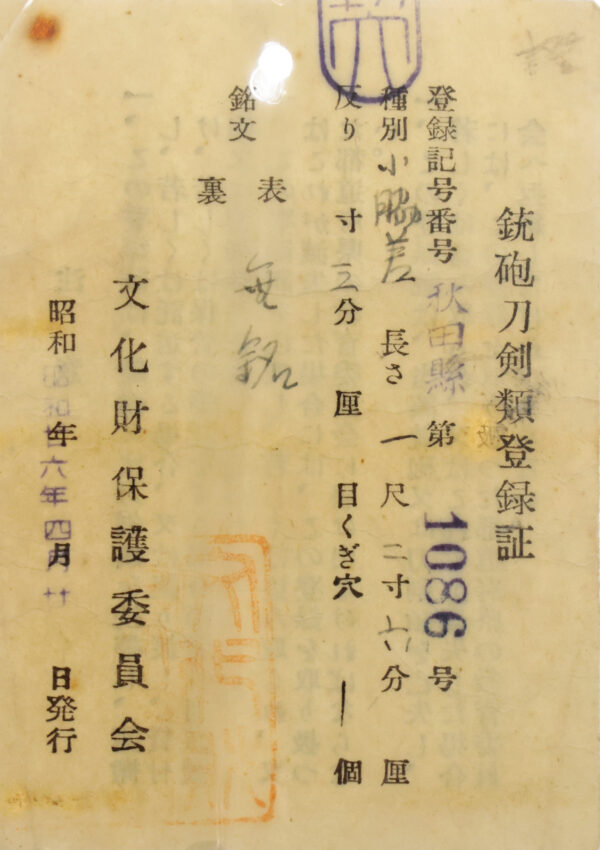 銃砲刀剣類登録証
登録記号番号 秋田縣 第 1086 号
種別 小脇差 長さ 一尺二寸六分 厘
反り 寸三分 厘 目くぎ穴 一個
銘文 表 無銘
裏
文化財保護委員会
昭和 昭和廿六年四月廿 日発行